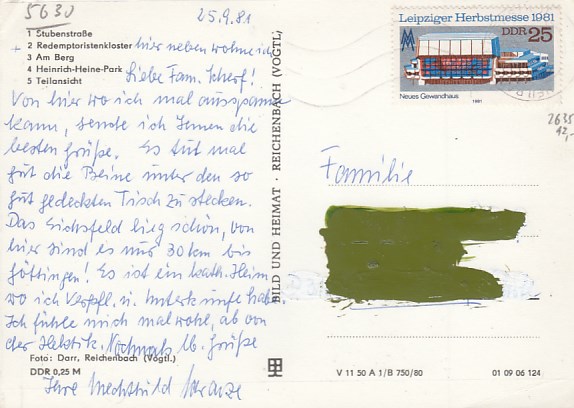 5630
25.9.81
1 Stubenstraße
+ 2 Redemptoristenkloster hier neben wohne ich
3 Am Berg
4 Heinrich-Heine-Park
5 Teilansicht
Liebe Fam. Scherf!
Von hier wo ich mal ausspannen
kann, sende ich Ihnen die
besten Grüße. Es tut mal
gut die Beine unter den so
gut gedeckten Tisch zu stecken.
Das Eichsfeld liegt schön, von
hier sind es nur 30 km bis
Göttingen! Es ist ein kath. Heim
wo ich Verpfl. u. Unterkunft habe.
Ich fühle mich mal wohl, ab von
der Hektik. Nochmals lb. Grüße
Foto: Darr, Reichenbach (Vogtl.)
DDR 0,25 M
Ihre Mechthild
BILD UND HEIMAT · REICHENBACH (VOGTL)
Leipziger Herbstmesse 1981
DDR 25
Neues Gewandhaus
1981
2635
12,-
Familie
V 11 50 A 1/B 750/80
01 09 06 124